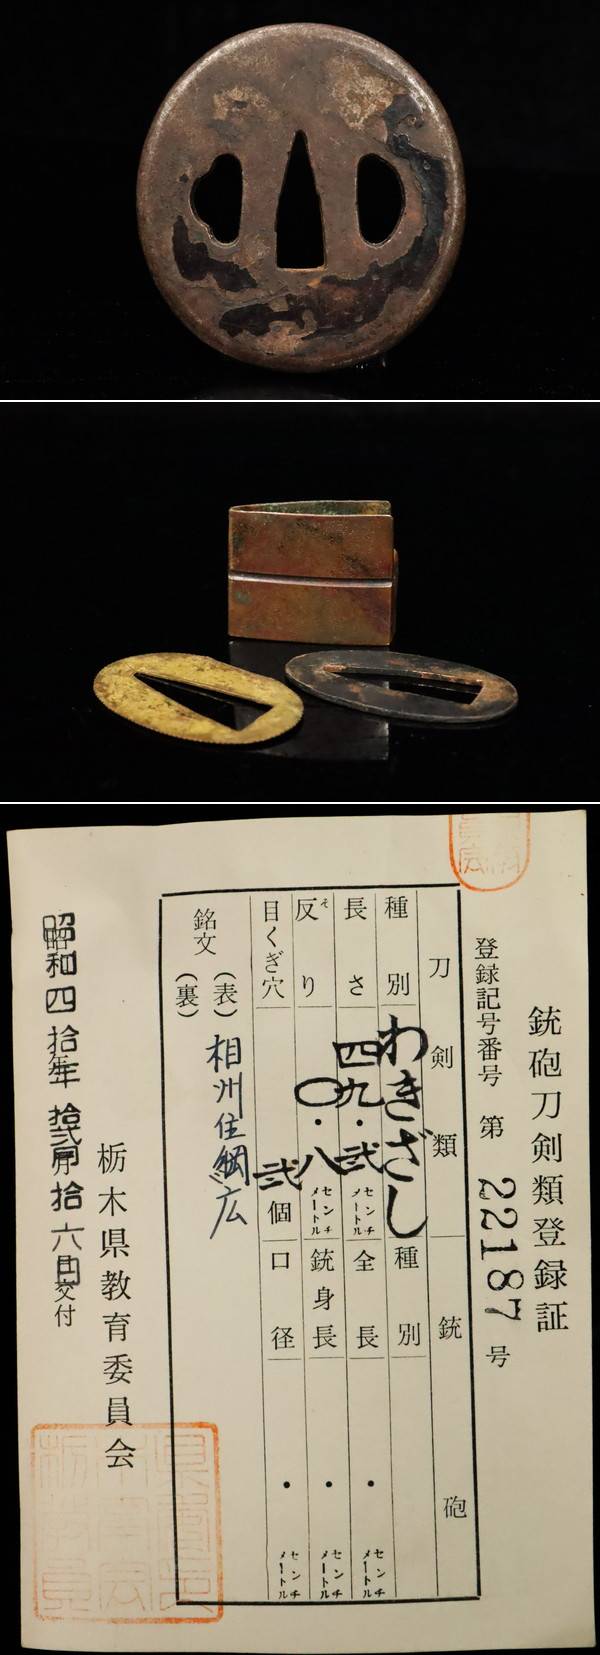 銃砲刀剣類登録証
登録記号番号 第 22187 号
刀剣類 銃砲
種別 わきざし 種別
長さ 四九・弐 センチメートル 全長 ・ センチメートル
反り そ 〇・八 センチメートル 銃身長 ・ センチメートル
目くぎ穴 弐 個 口径 ・ センチメートル
銘文 (表) 相州住綱広
(裏)
栃木県教育委員会
昭和四拾年拾弐月拾六日交付